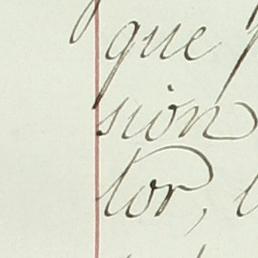 que
sion
tor,